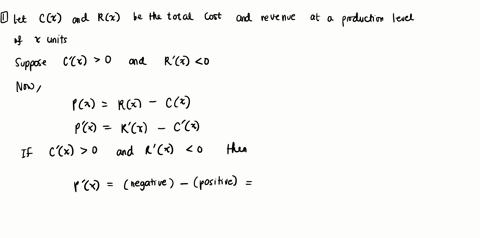 ① Let C(x) and R(x) be the total cost and revenue at a production level
of x units
Suppose C'(x) > 0 and R'(x) < 0
Now,
P(x) = R(x) - C(x)
P'(x) = R'(x) - C'(x)
If C'(x) > 0 and R'(x) < 0 then
P'(x) = (negative) - (positive) =